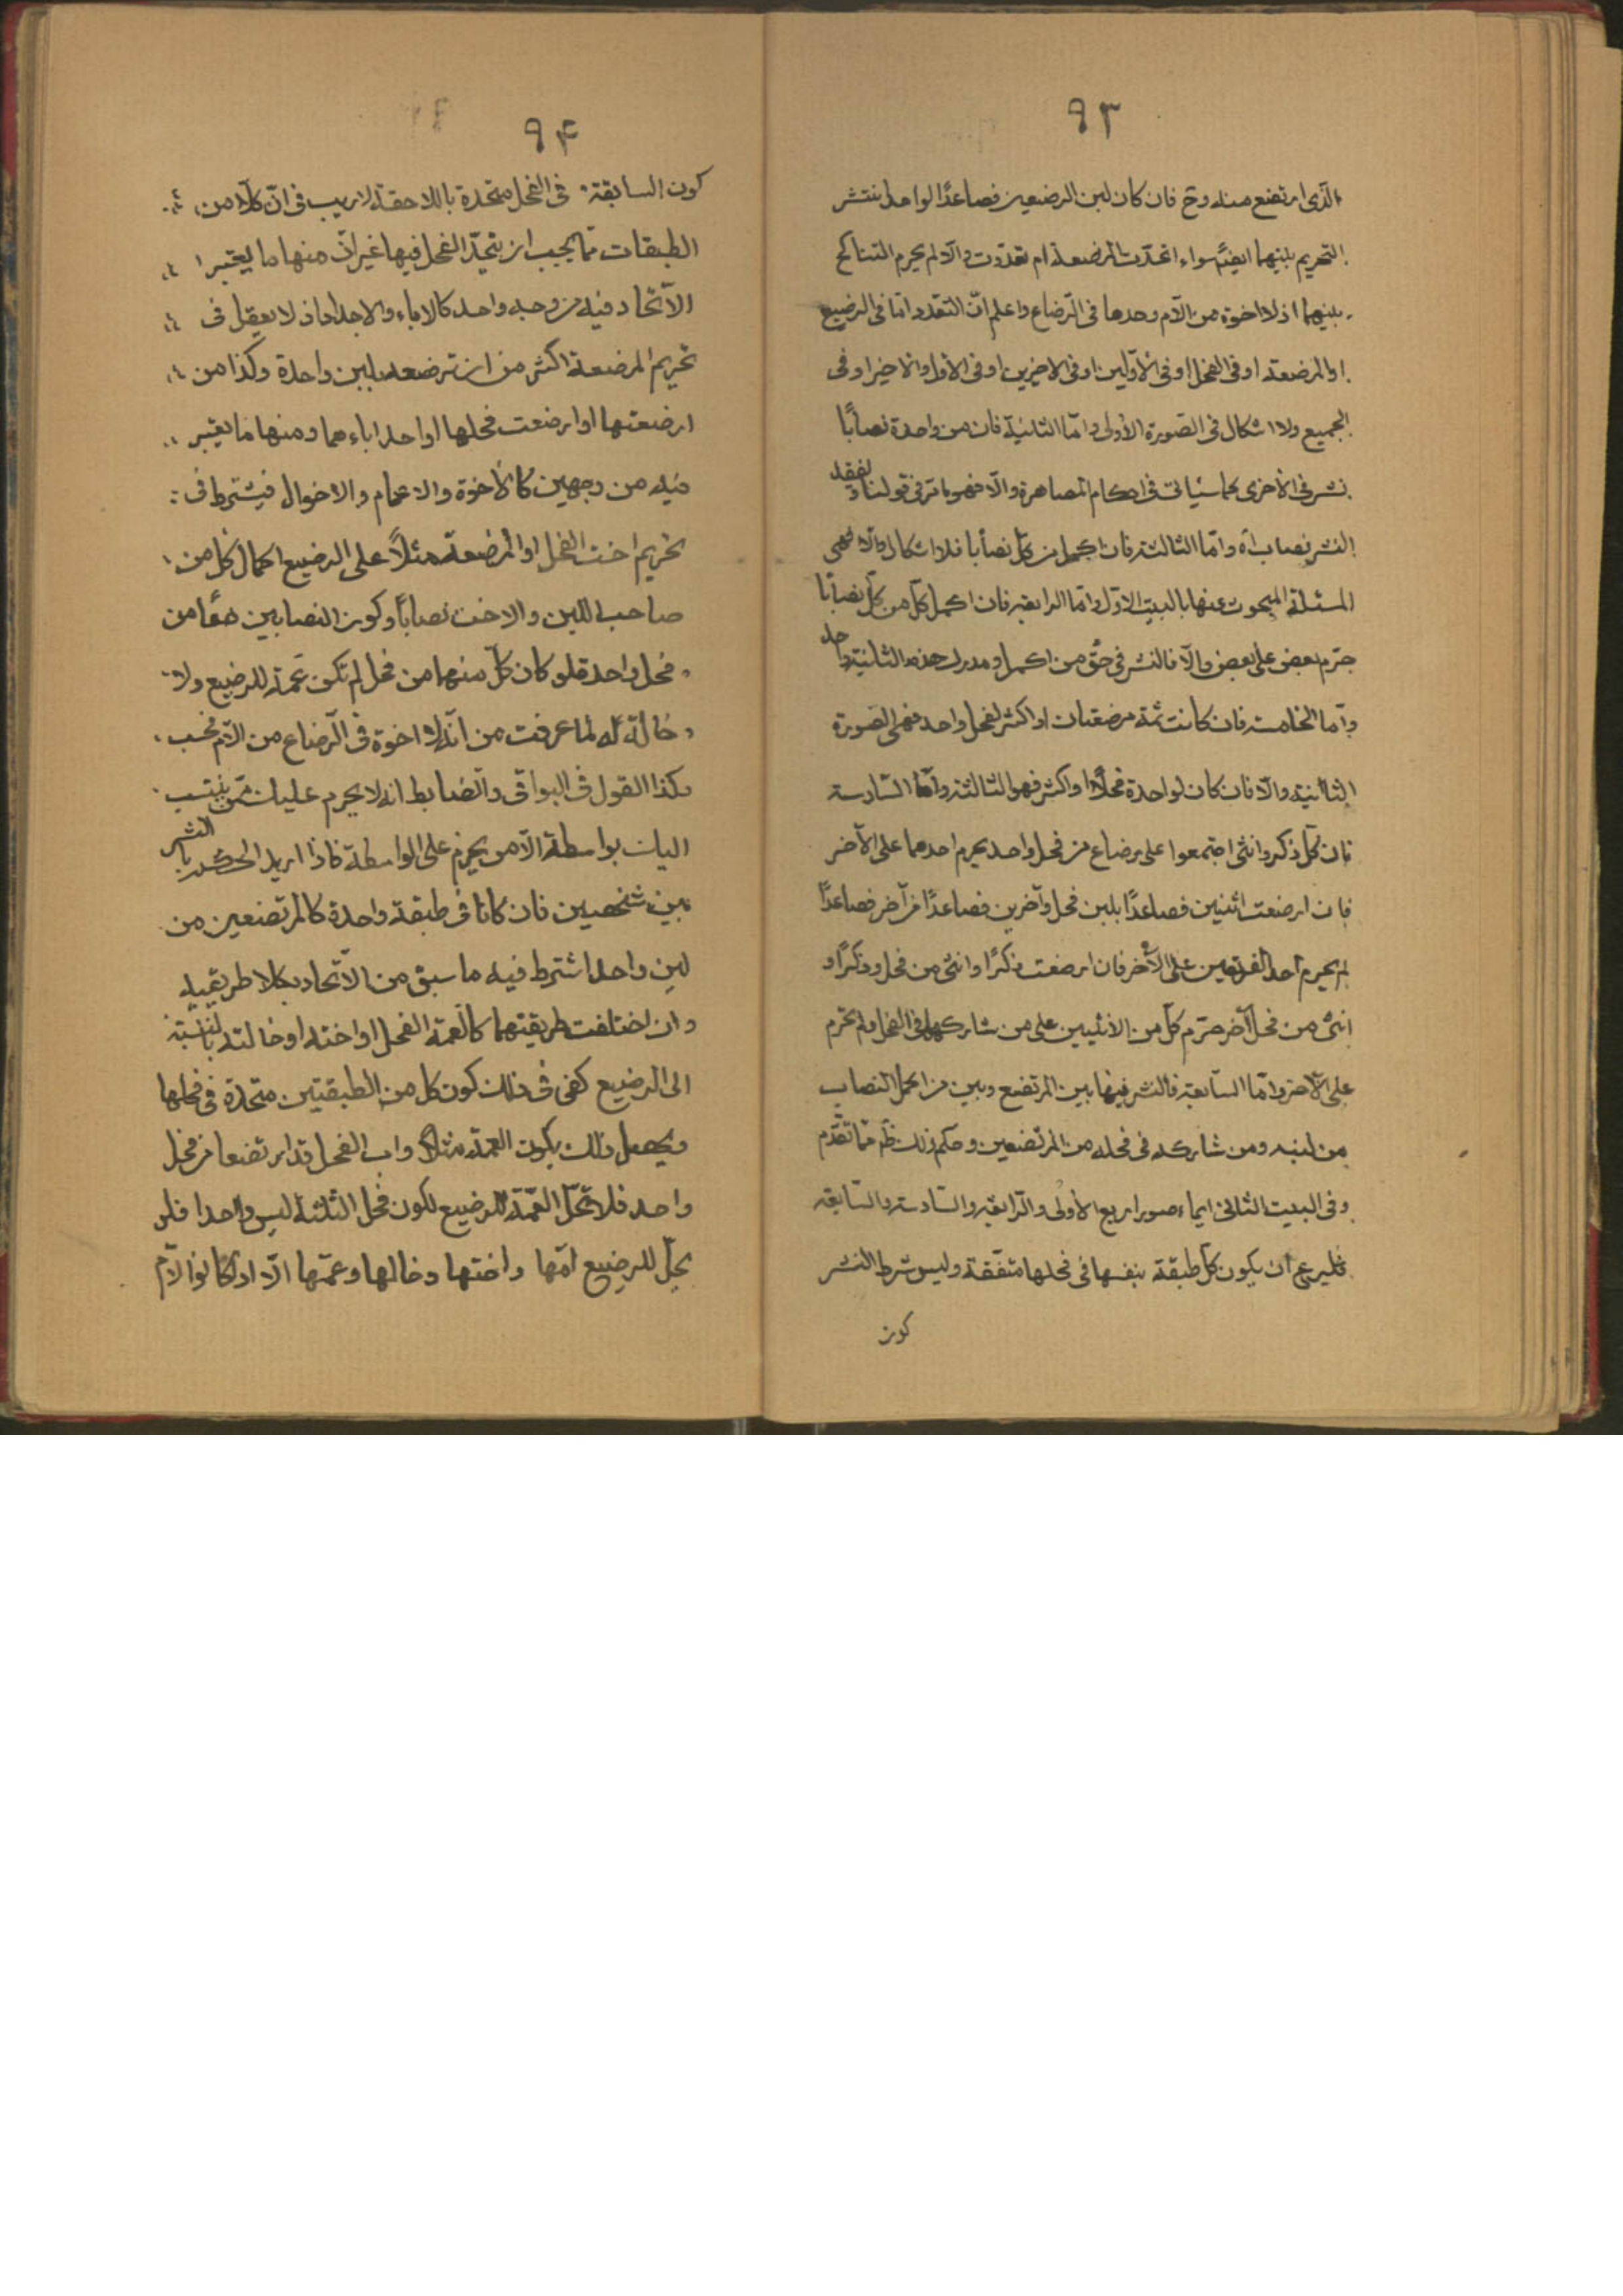 ٩٣
الّذى ارتضع منه وح فان كان لبن الرضيعين فصاعدًا لواحد انتشر
التحريم بينهما ايضًا سواء اتحدت المرضعة ام تعدّدت والّا لم يحرم التناكح
بينهما اذ لا اخوة من الامّ وحدها فى الرّضاع واعلم انّ التعدد امّا فى الرضيع
او المرضعة او فى الفحل او فى الأوّلين او فى الاخيرين او فى الأوّل والاخير او فى
الجميع ولا اشكال فى الصّورة الأولى وامّا الثانية فان من واحدة نصابًا
نشر فى الاخرى كما سيأتى فى احكام المصاهرة والّا فهو ما مرّ فى قولنا ولفقد
النشر نصاب اه وامّا الثالثة فان اكمل من كلّ نصابا فلا اشكال والّا فهى
المسئلة المبحوث عنها بالبيت الاوّل وامّا الرابعة فان اكمل كلّ من كلّ نصابًا
حرّم بعض على بعض والّا فالنشر فى حقّ من اكمل ومدرك هذه الثانية واحد
وامّا الخامسة فان كانت ثمة مرضعتان او اكثر لفحل واحد فهى الصّورة
الثانية والّا فان كان لواحدة فحلًا او اكثر فهو الثالثة وامّا السّادسة
فان كلّ ذكر وانثى اجتمعوا على رضاع من فحل واحد يحرم احدهما على الآخر
فان ارضعت اثنين فصاعدًا بلبن فحل وآخرين فصاعدًا من آخر فصاعدًا
لم يحرم احد الفريقين على الآخر فان ارضعت ذكرًا وانثى من فحل وذكرًا و
انثى من فحل آخر حرّم كلّ من الانثيين على من شاركها فى الفحل ولم تحرم
على الآخر وامّا السّابعة فالنشر فيها بين المرتضع وبين من اكمل النصاب
من لبنه ومن شاركه فى فحله من المرتضعين وحكم ذلك ظ ممّا تقدّم
وفى البيت الثانى ايماء صور اربع الأولى والرّابعة والسّادسة والسّابعة
فليرع ان يكون كلّ طبقة بنفسها فى فحلها متّفقة وليس شرط النشر
كون
٩۴
كون السابقة فى الفحل متحدة باللاحقة لا ريب فى انّ كلّا من
الطبقات ممّا يجب ان يتحد الفحل فيها غير انّ منها ما يعتبر
الاتّحاد فيه من وجه واحد كالاباء والاجداد اذ لا يعقل فى
تحريم المرضعة اكثر من ان ترضعه بلبن واحدة وكذا من
ارضعتها او ارضعت فحلها او احد اباءهما ومنها ما يعتبر
فيه من وجهين كالأخوة والاعمام والاخوال فيشترط فى
تحريم اخت الفحل او المرضعة مثلًا على الرضيع اكمال كل من
صاحب اللبن والاخت نصابًا وكون النصابين معًا من
فحل واحد فلو كان كلّ منهما من فحل لم تكن عمة للرضيع ولا
خالة له لما عرفت من انّه لا اخوة فى الرّضاع من الامّ فحسب
وكذا القول فى البواقى والضابط انه لا يحرم عليك ممّن ينتسب
اليك بواسطة الّا من يحرم على الواسطة فاذا اريد الحكم بالنشر
بين شخصين فان كانا فى طبقة واحدة كالمرتضعين من
لبن واحد اشترط فيه ما سبق من الاتّحاد بكلا طريقيه
وان اختلفت طريقتهما كالعمة الفحل او اخته او خالته بالنسبة
الى الرضيع كفى فى ذلك كون كل من الطبقتين متحدة فى فحلها
ويحصل ذلك بكون العمة مثلًا واب الفحل قد ارتضعا من فحل
واحد فلا تحلّ العمّة للرضيع لكون فحل الثلثة ليس واحدا فلو
يحلّ للرضيع امّها واختها وخالها وعمّها الّا اذا كانوا الامّ